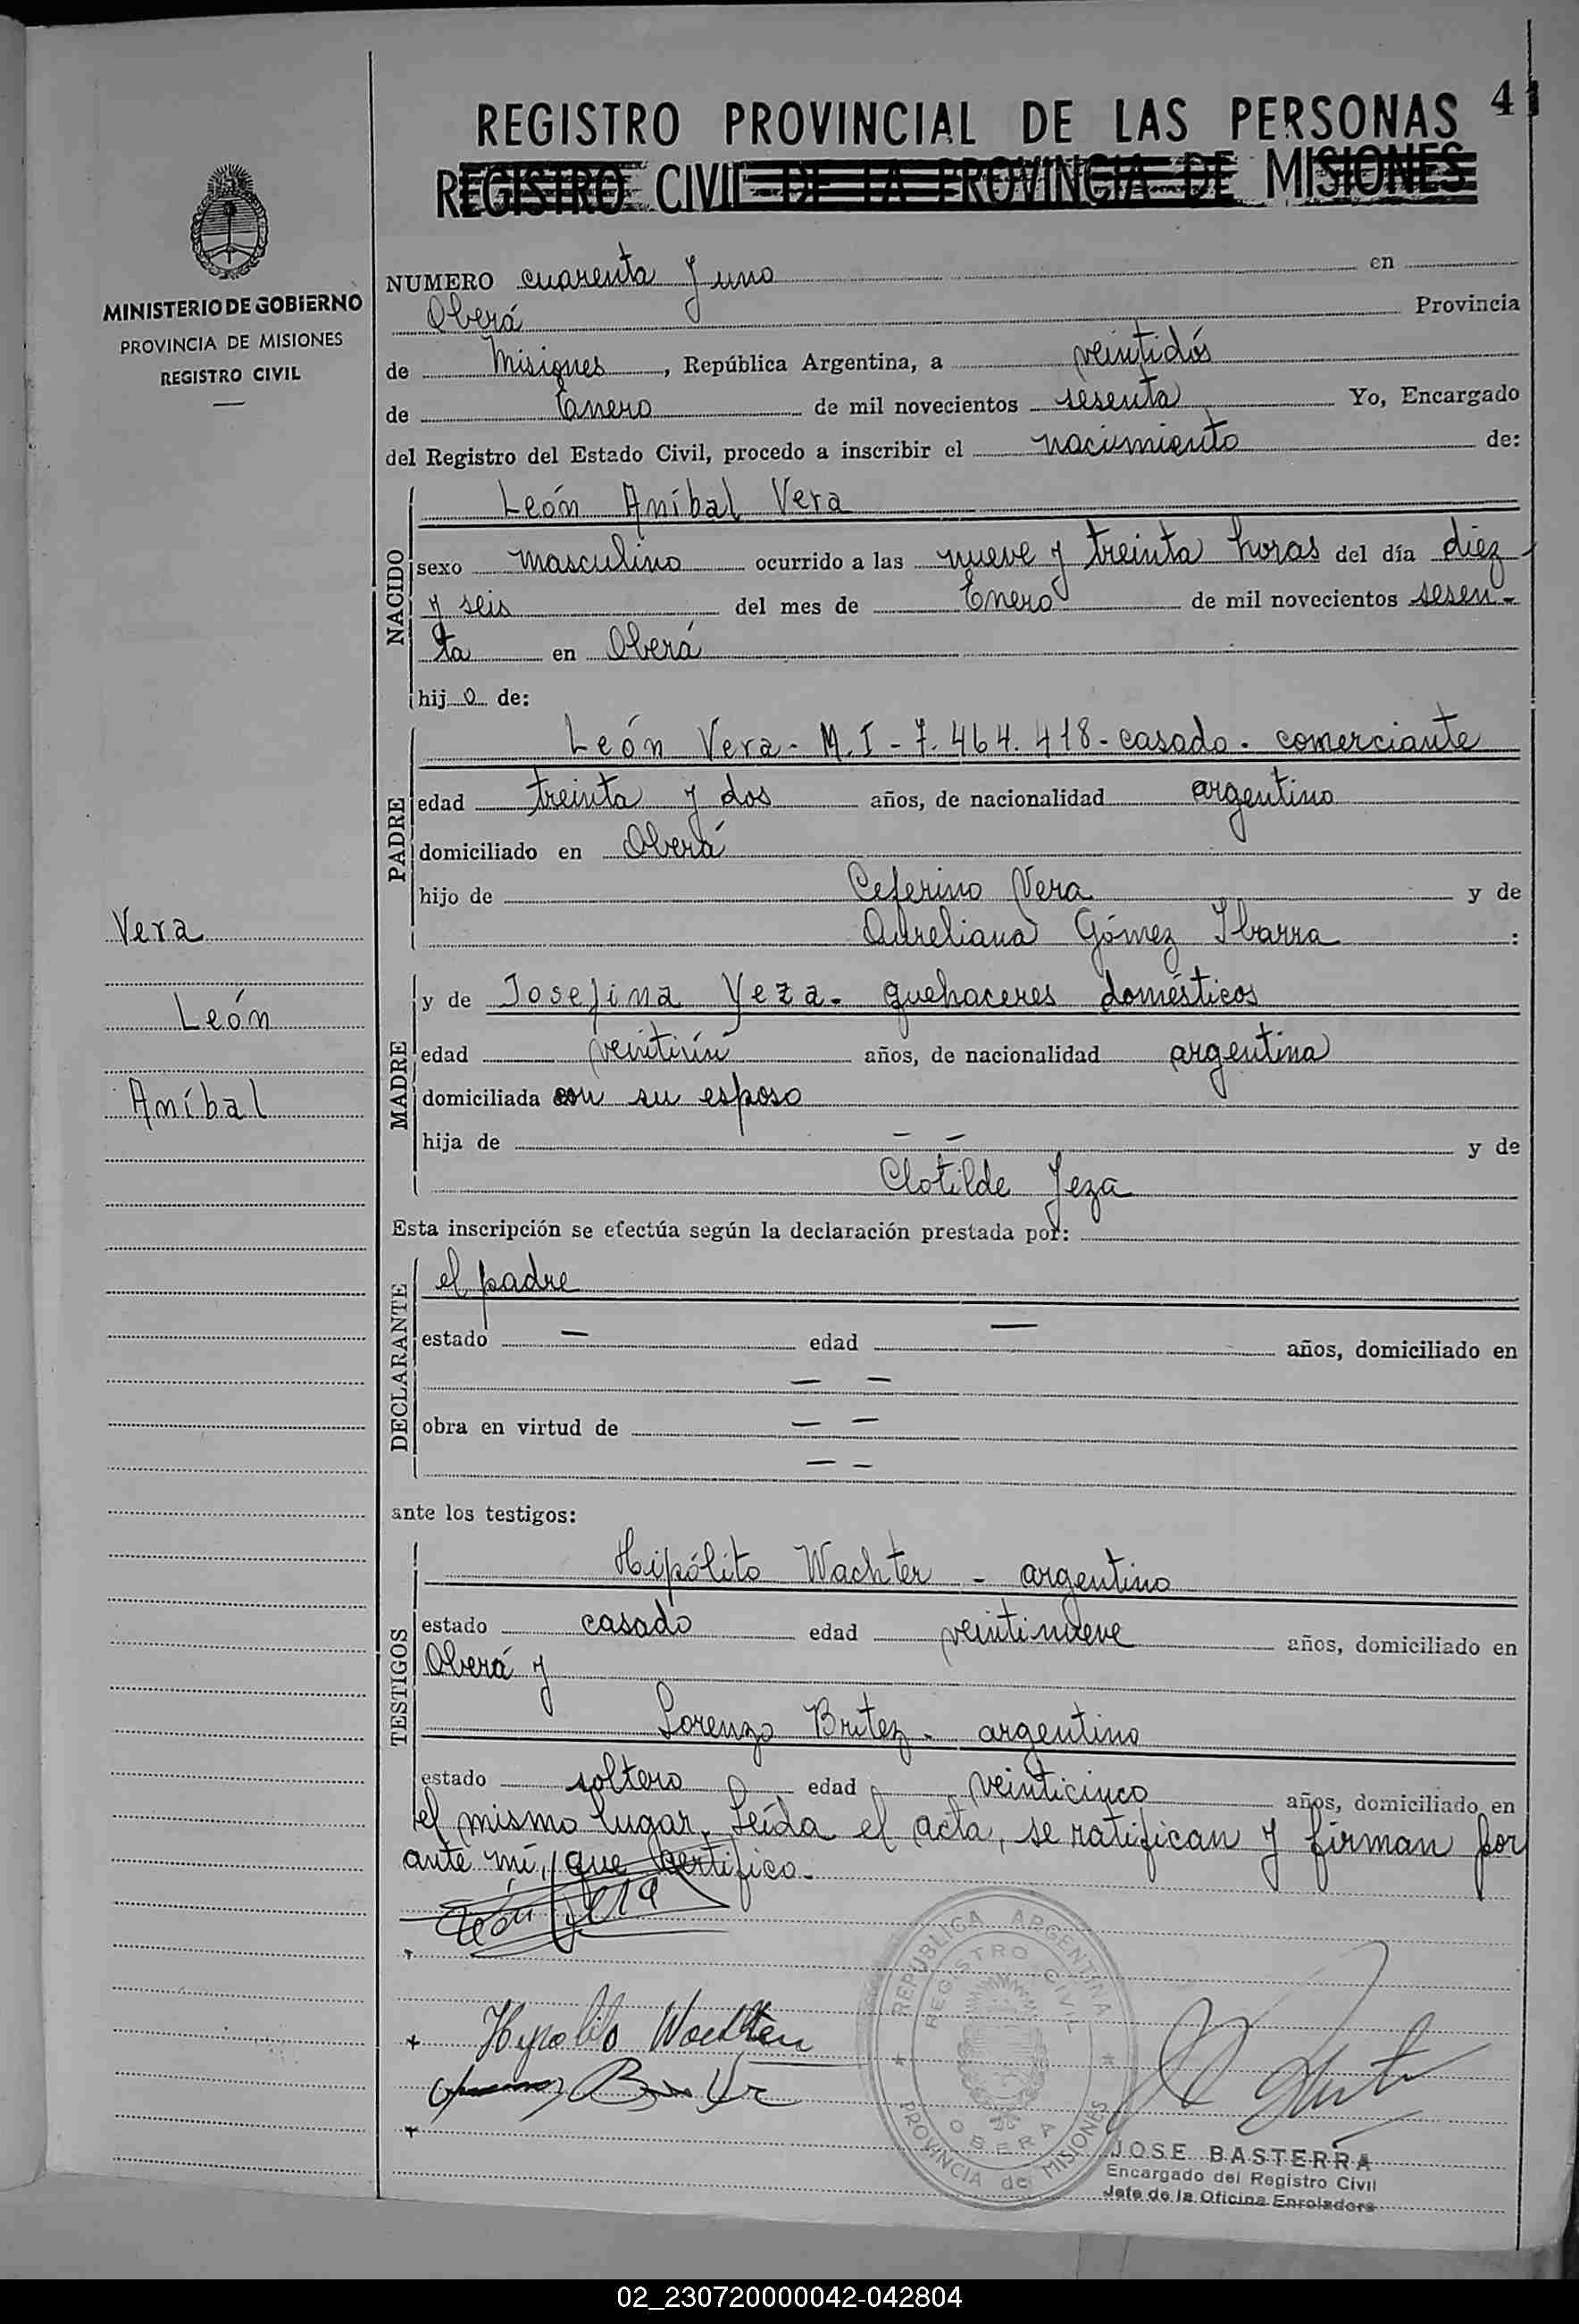 41
REGISTRO PROVINCIAL DE LAS PERSONAS
REGISTRO CIVIL DE LA PROVINCIA DE MISIONES
MINISTERIO DE GOBIERNO
PROVINCIA DE MISIONES
REGISTRO CIVIL
Vera
León
Aníbal
NUMERO cuarenta y uno en
Oberá Provincia
de Misiones, República Argentina, a veintidós
de Enero de mil novecientos sesenta Yo, Encargado
del Registro del Estado Civil, procedo a inscribir el nacimiento de:
NACIDO
León Aníbal Vera
sexo masculino ocurrido a las nueve y treinta horas del día diez
y seis del mes de Enero de mil novecientos sesen-
ta en Oberá
hijo de:
PADRE
León Vera - M.I - 7.464.418 - casado - comerciante
edad treinta y dos años, de nacionalidad argentino
domiciliado en Oberá
hijo de Ceferino Vera y de
Aureliana Gómez Ibarra :
MADRE
y de Josefina Yeza - quehaceres domésticos
edad años, de nacionalidad argentina
domiciliada con su esposo
hija de — — y de
Clotilde Yeza
Esta inscripción se efectúa según la declaración prestada por:
DECLARANTE
el padre
estado — edad — años, domiciliado en
— —
obra en virtud de — —
— —
ante los testigos:
TESTIGOS
Hipólito Wachter - argentino
estado casado edad veintinueve años, domiciliado en
Oberá y
Lorenzo Britez - argentino
estado soltero edad veinticinco años, domiciliado en
el mismo lugar. Leída el acta, se ratifican y firman por
ante mí, que certifico.-
León Vera
Hipolito Wachter
REPUBLICA ARGENTINA
REGISTRO CIVIL
OBERA
PROVINCIA de MISIONES
JOSE BASTERRA
Encargado del Registro Civil
Jefe de la Oficina Enroladora
02_230720000042-042804